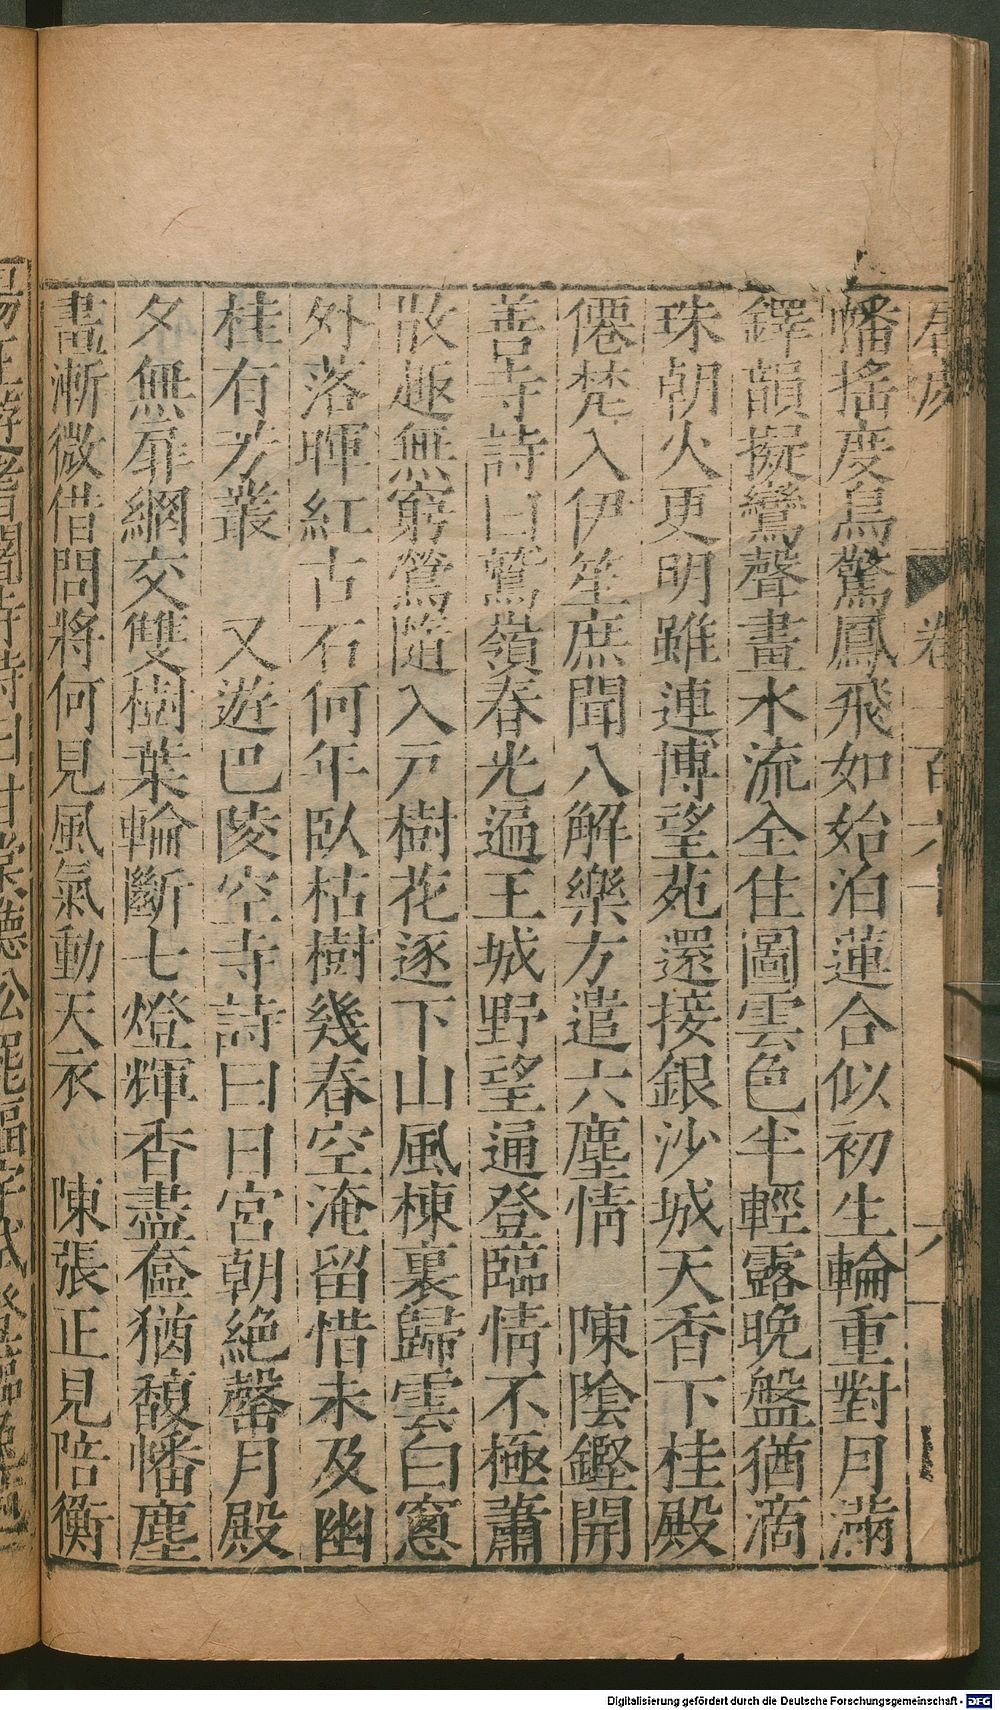 幡搖度鳥驚鳳飛如始泊蓮合似初生輪重對月滿
鐸韻擬鸞聲畫水流全住圖雲色半輕露晚盤猶滴
珠朝火更明雖連博望苑還接銀沙城天香下桂殿
僊梵入伊笙庶聞八解樂方遣六塵情　陳陰鏗開
善寺詩曰鷲嶺春光遍王城野望通登臨情不極蕭
散趣無窮鶯隨入戸樹花逐下山風棟裏歸雲白窻
外落暉紅古石何年臥枯樹幾春空淹留惜未及幽
桂有芳叢　又遊巴陵空寺詩曰日宮朝絶磬月殿
夕無扉網交雙樹葉輪斷七燈輝香盡奩猶馥幡塵
畫漸微借問將何見風氣動天衣　陳張正見陪衡
Digitalisierung gefördert durch die Deutsche Forschungsgemeinschaft - DFG